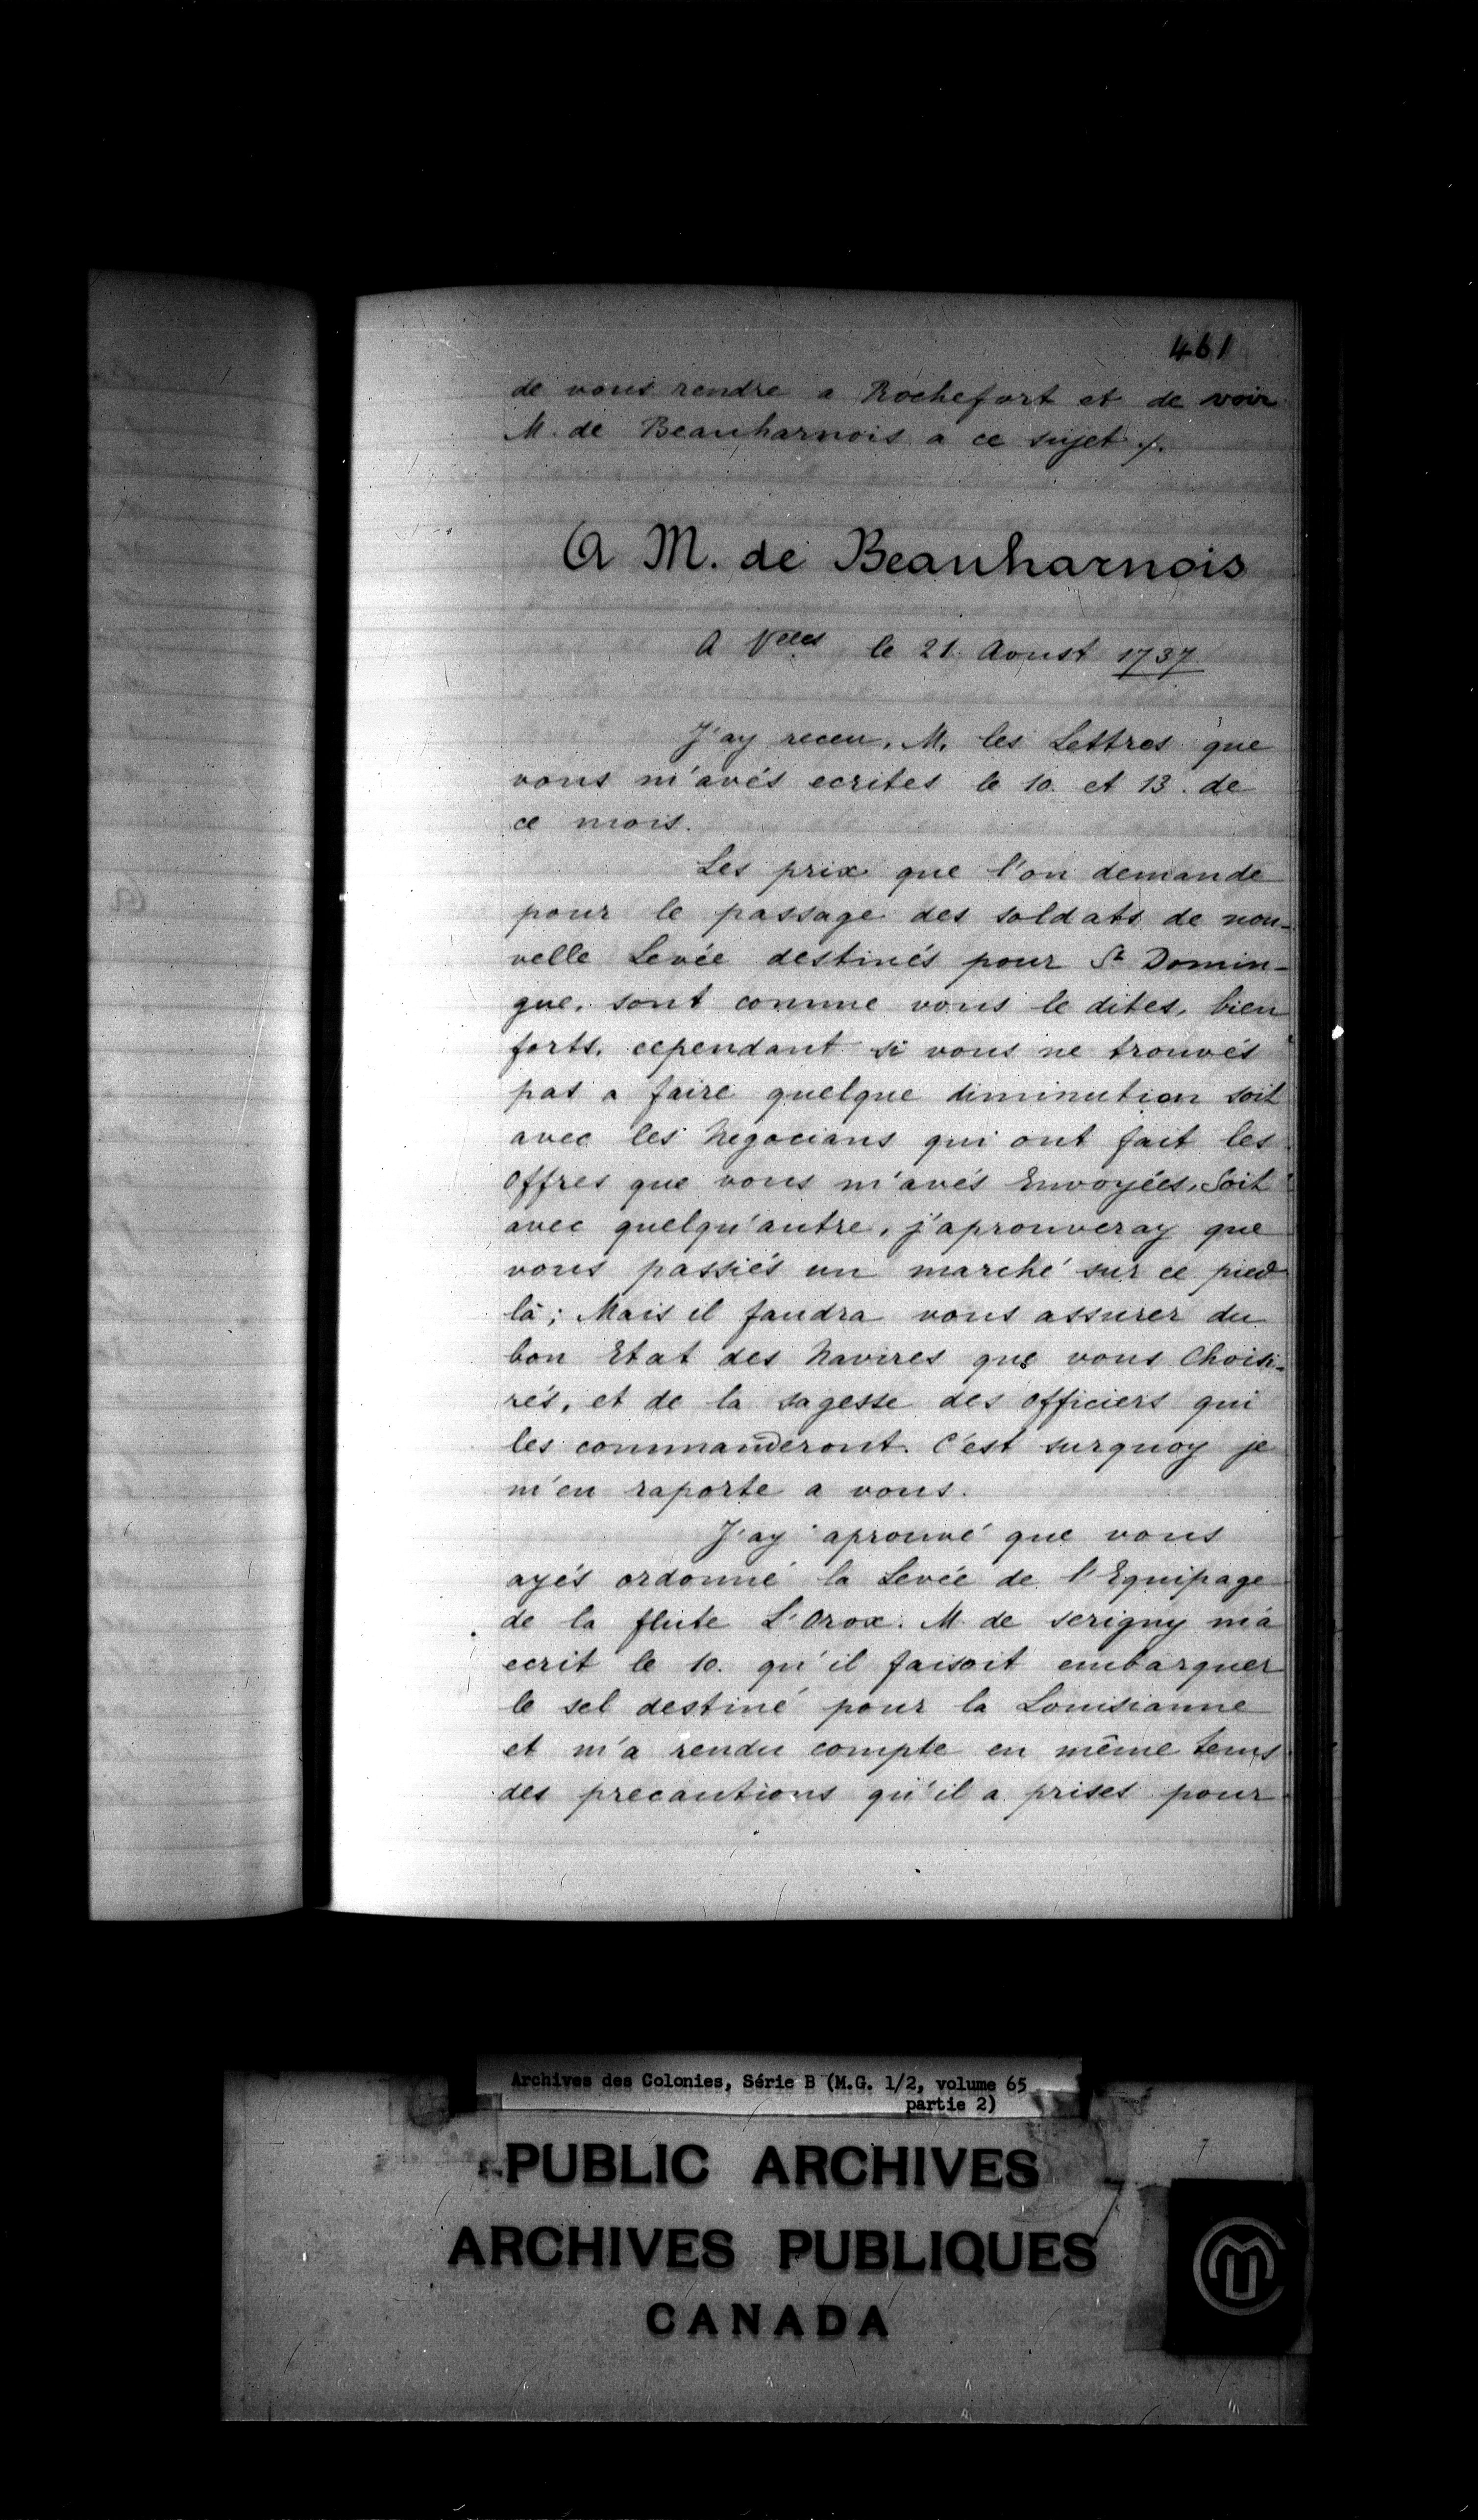 461
de vous rendre a Rochefort et de voir
M. de Beauharnois a ce sujet ./.
A M. de Beauharnois
A Velles le 21. Aoust 1737
J'ay receu, M. les Lettres que
vous m'avés ecrites le 10. et 13. de
ce mois.
Les prix que l'on demande
pour le passage des soldats de nou-
velle Levée destinés pour St Domin-
gue, sont comme vous le dites, bien
forts, cependant si vous ne trouvés
pas a faire quelque diminution soit
avec les Negocians qui ont fait les
offres que vous m'avés Envoyées, Soit
avec quelqu'autre, j'aprouveray que
vous passiés un marché sur ce pied
là; Mais il faudra vous assurer du
bon Etat des Navires que vous Choisi-
rés, et de la sagesse des officiers qui
les commanderont. C'est surquoy je
m'en raporte a vous.
J'ay aprouvé que vous
ayés ordonné la Levée de l'Equipage
de la flute L'Orox. M. de serigny m'a
ecrit le 10. qu'il faisoit embarquer
le sel destiné pour la Louisianne
et m'a rendu compte en même tems
des precautions qu'il a prises pour
Archives des Colonies, Série B (M.G. 1/2, volume 65
partie 2)
PUBLIC ARCHIVES
ARCHIVES PUBLIQUES
CANADA